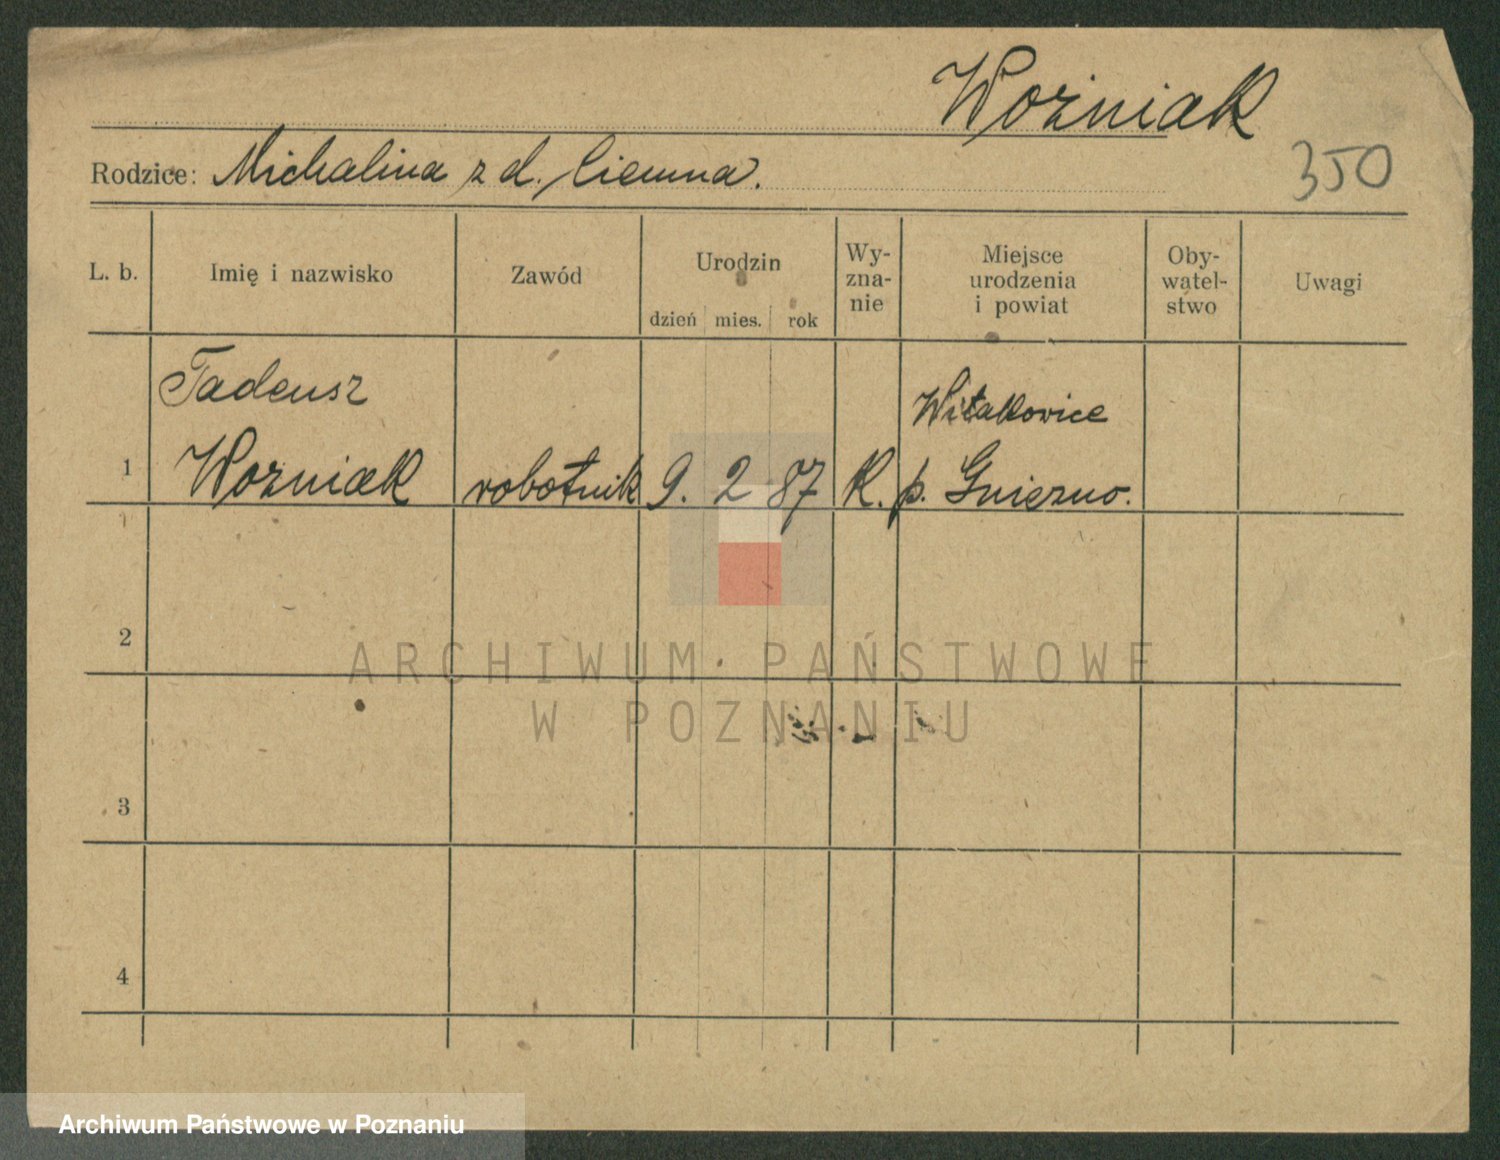 Woźniak
Rodzice: Michalina z d. Ciemna.
350
L. b.
Imię i nazwisko
Zawód
Urodzin
dzień mies. rok
Wy-
zna-
nie
Miejsce
urodzenia
i powiat
Oby-
watel-
stwo
Uwagi
Tadeusz
Witakowice
1 Wozniak robotnik 9. 2 87 K. p. Gniezno.
2
ARCHIWUM PAŃSTWOWE
W POZNANIU
3
4
Archiwum Państwowe w Poznaniu